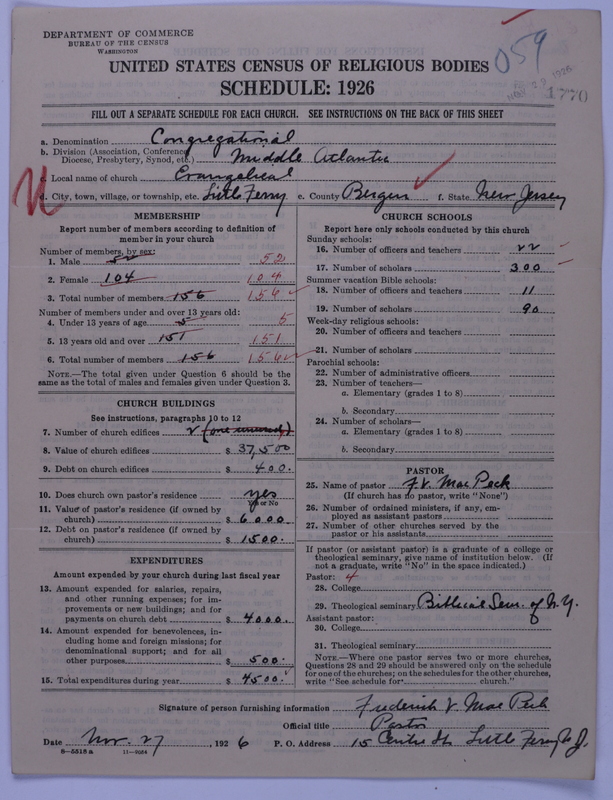 DEPARTMENT OF COMMERCE
BUREAU OF THE CENSUS
WASHINGTON
059
1770
UNITED STATES CENSUS OF RELIGIOUS BODIES
SCHEDULE: 1926
FILL OUT A SEPARATE SCHEDULE FOR EACH CHURCH. SEE INSTRUCTIONS ON THE BACK OF THIS SHEET
a. Denomination Congregational
b. Division (Association, Conference, Diocese, Presbytery, Synod, etc.) Middle Atlantic
c. Local name of church Evangelical
d. City, town, village, or township, etc. Little Ferry e. County Bergen f. State New Jersey
MEMBERSHIP
Report number of members according to definition of
member in your church
Number of members, by sex:
1. Male 52 52
2. Female 104 104
3. Total number of members 156 156
Number of members under and over 13 years old:
4. Under 13 years of age 5 5
5. 13 years old and over 151 151
6. Total number of members 156 156
NOTE.—The total given under Question 6 should be the
same as the total of males and females given under Question 3.
CHURCH BUILDINGS
See instructions, paragraphs 10 to 12
7. Number of church edifices 2 (one
8. Value of church edifices $ 37,500
9. Debt on church edifices $ 400.
10. Does church own pastor's residence yes
Yes or No
11. Value of pastor's residence (if owned by
church) $ 6000.
12. Debt on pastor's residence (if owned by
church) $ 1500.
EXPENDITURES
Amount expended by your church during last fiscal year
13. Amount expended for salaries, repairs,
and other running expenses; for im-
provements or new buildings; and for
payments on church debt $ 4000.
14. Amount expended for benevolences, in-
cluding home and foreign missions; for
denominational support; and for all
other purposes $ 500.
15. Total expenditures during year $ 4500.
CHURCH SCHOOLS
Report here only schools conducted by this church
Sunday schools:
16. Number of officers and teachers 22
17. Number of scholars 300
Summer vacation Bible schools:
18. Number of officers and teachers 11
19. Number of scholars 90
Week-day religious schools:
20. Number of officers and teachers
21. Number of scholars
Parochial schools:
22. Number of administrative officers
23. Number of teachers—
a. Elementary (grades 1 to 8)
b. Secondary
24. Number of scholars—
a. Elementary (grades 1 to 8)
b. Secondary
PASTOR
25. Name of pastor F. V. Mac Peek
(If church has no pastor, write "None")
26. Number of ordained ministers, if any, em-
ployed as assistant pastors
27. Number of other churches served by the
pastor or his assistants
If pastor (or assistant pastor) is a graduate of a college or
theological seminary, give name of institution below. (If
not a graduate, write "No" in the space indicated.)
Pastor: 4
28. College
29. Theological seminary Biblical Sem. of N.Y.
Assistant pastor:
30. College
31. Theological seminary
NOTE.—Where one pastor serves two or more churches,
Questions 28 and 29 should be answered only on the schedule
for one of the churches; on the schedules for the other churches,
write "See schedule for church."
Signature of person furnishing information Frederick V. Mac Peek
Official title Pastor
Date Nov. 27, 1926 P. O. Address 15 Centre St. Little Ferry N. J.
8—5518a 11—9054